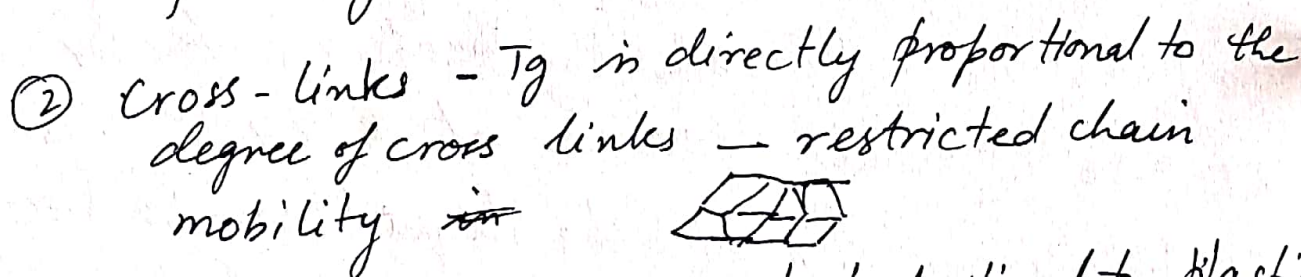 ② Cross-links - Tg is directly proportional to the
degree of cross links — restricted chain
mobility